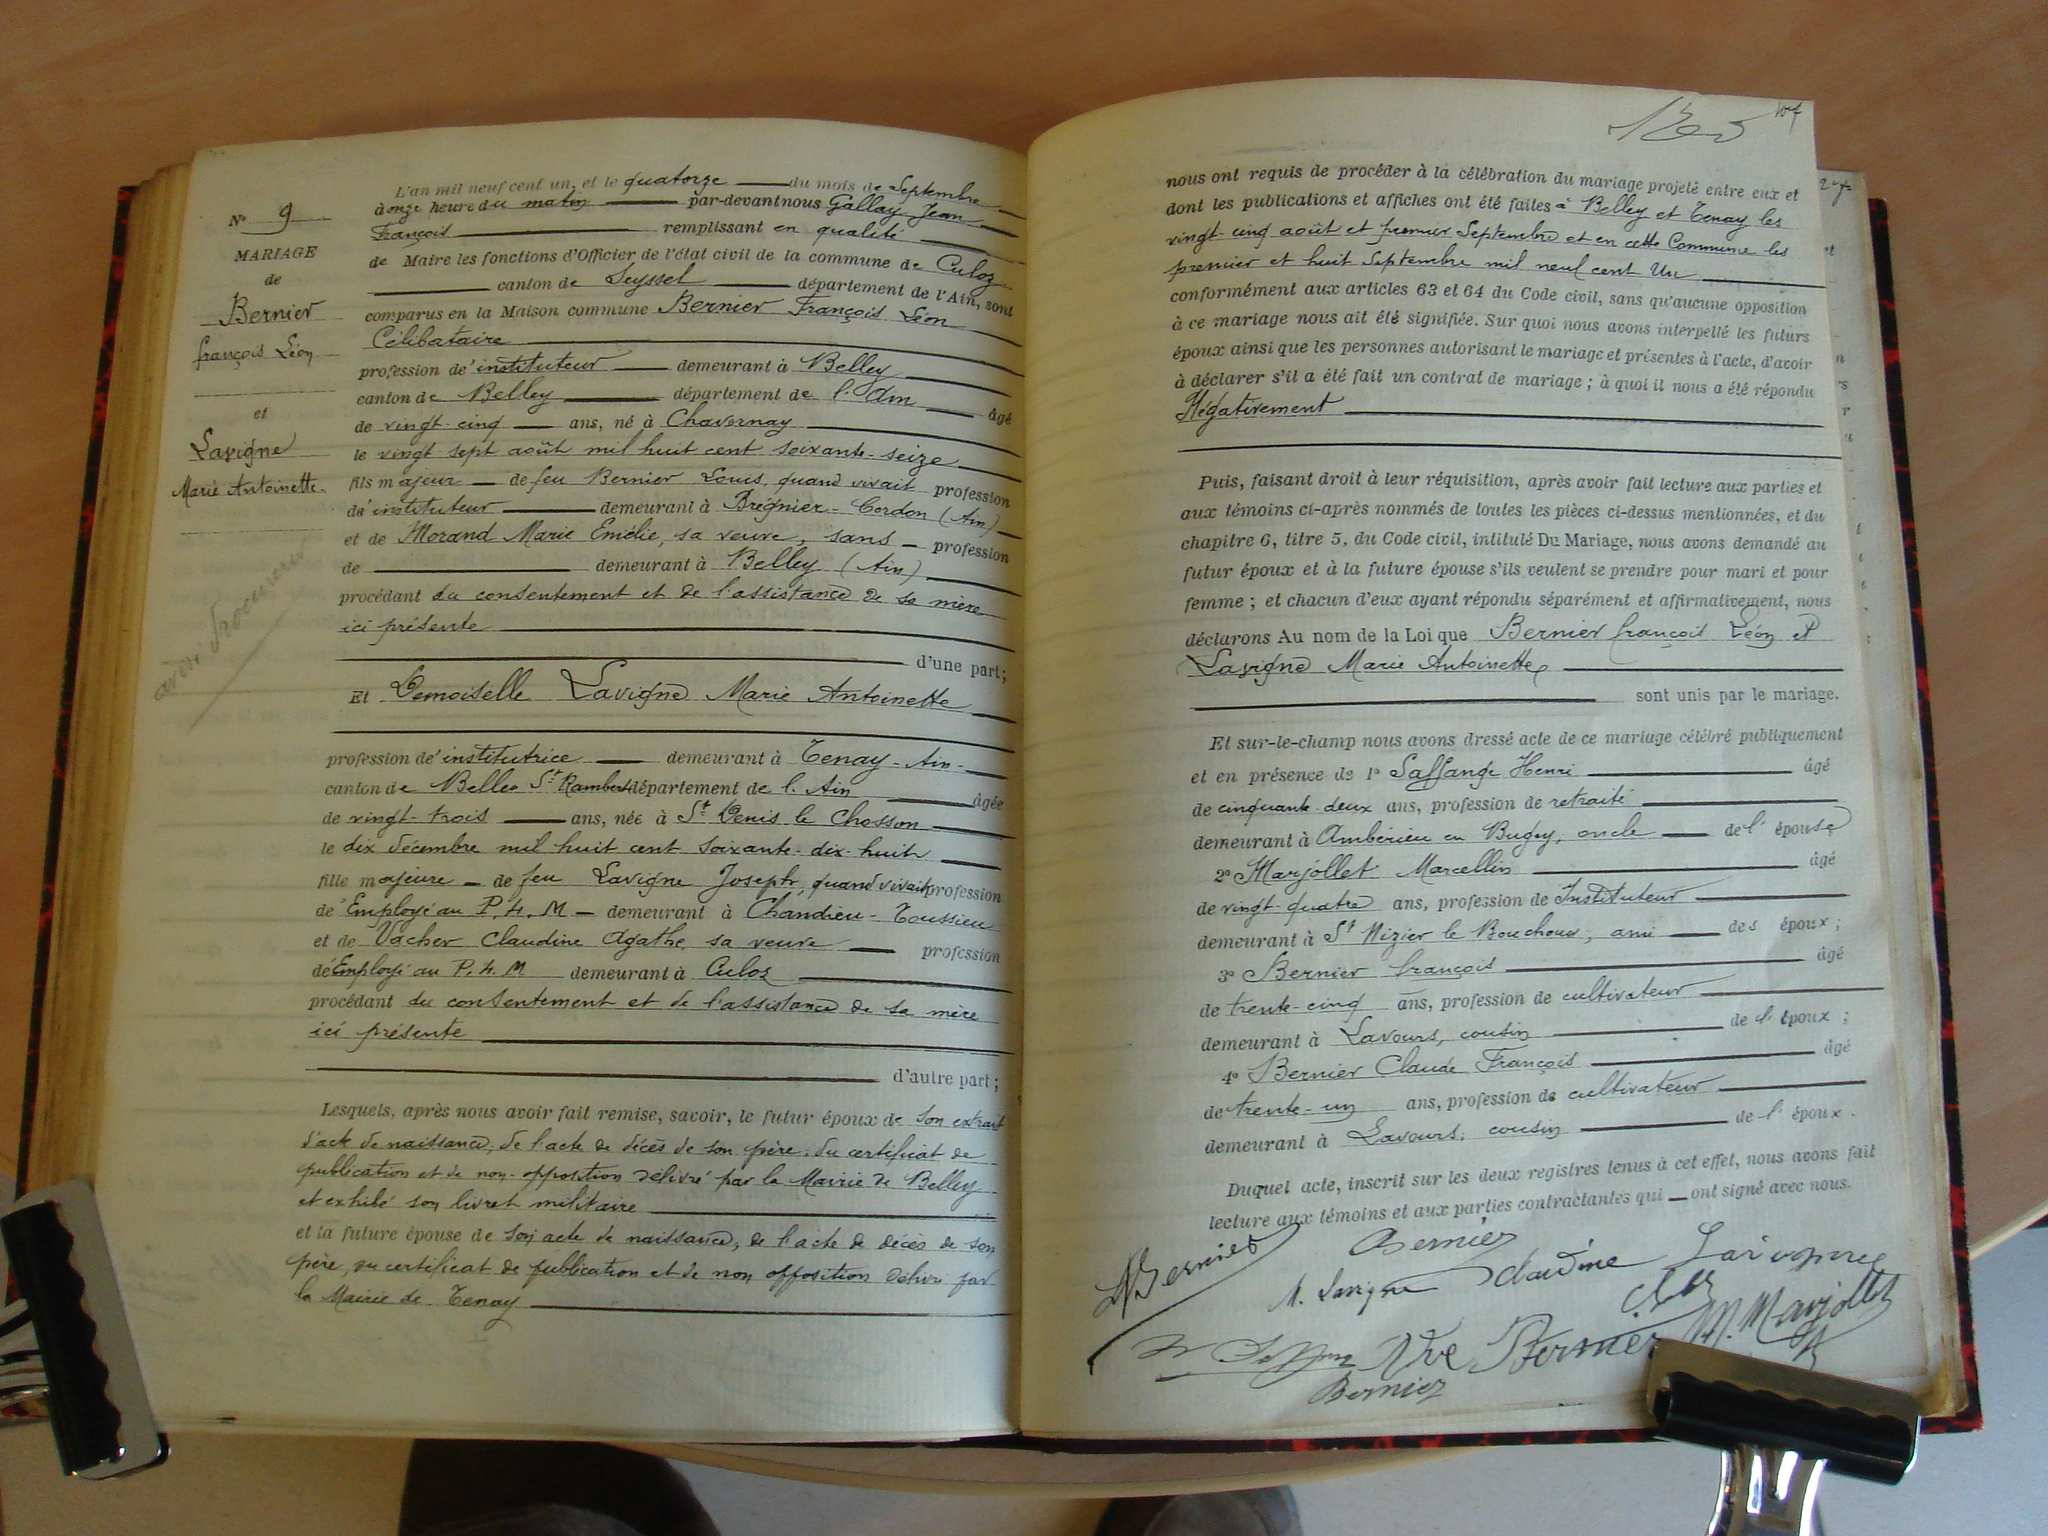 N° 9
MARIAGE
de
Bernier
François Léon
et
Lavigne
Marie Antoinette
L'an mil neuf cent un, et le quatorze du mois de Septembre
à onze heure du matin par-devant nous Gallay Jean
François remplissant en qualité
de Maire les fonctions d'Officier de l'état civil de la commune de Culoz
canton de Seyssel département de l'Ain, sont
comparus en la Maison commune Bernier François Léon
Célibataire
profession de instituteur demeurant à Belley
canton de Belley département de l'Ain âgé
de vingt-cinq ans, né à Chavornay
le vingt-sept août mil huit cent soixante-seize
fils majeur de feu Bernier Louis, quand vivait profession
de instituteur demeurant à Brégnier-Cordon (Ain)
et de Morand Marie Emélie, sa veuve, sans profession
de demeurant à Belley (Ain)
procédant du consentement et de l'assistance de sa mère
ici présente
d'une part;
Et Demoiselle Lavigne Marie Antoinette
profession de institutrice demeurant à Tenay-Ain-
canton de St Rambert département de l'Ain âgée
de vingt-trois ans, née à St Denis le Chosson
le dix décembre mil huit cent soixante-dix-huit
fille majeure de feu Lavigne Joseph, quand vivait profession
de Employé au P.L.M demeurant à Chandieu-Toussieu
et de Vacher Claudine Agathe, sa veuve profession
de Employé au P.L.M demeurant à Culoz
procédant du consentement et de l'assistance de sa mère
ici présente
d'autre part;
Lesquels, après nous avoir fait remise, savoir, le futur époux de son extrait
d'acte de naissance, de l'acte de décès de son père, du certificat de
publication et de non-opposition délivré par la Mairie de Belley
et exhibé son livret militaire
et la future épouse de son acte de naissance, de l'acte de décès de son
père, du certificat de publication et de non opposition délivré par
la Mairie de Tenay
nous ont requis de procéder à la célébration du mariage projeté entre eux et
dont les publications et affiches ont été faites à Belley et Tenay les
vingt-cinq août et premier Septembre et en cette Commune les
premier et huit Septembre mil neuf cent Un
conformément aux articles 63 et 64 du Code civil, sans qu'aucune opposition
à ce mariage nous ait été signifiée. Sur quoi nous avons interpellé les futurs
époux ainsi que les personnes autorisant le mariage et présentes à l'acte, d'avoir
à déclarer s'il a été fait un contrat de mariage; à quoi il nous a été répondu
Négativement
Puis, faisant droit à leur réquisition, après avoir fait lecture aux parties et
aux témoins ci-après nommés de toutes les pièces ci-dessus mentionnées, et du
chapitre 6, titre 5, du Code civil, intitulé Du Mariage, nous avons demandé au
futur époux et à la future épouse s'ils veulent se prendre pour mari et pour
femme; et chacun d'eux ayant répondu séparément et affirmativement, nous
déclarons Au nom de la Loi que Bernier François Léon et
Lavigne Marie Antoinette
sont unis par le mariage.
Et sur-le-champ nous avons dressé acte de ce mariage célébré publiquement
et en présence de 1° Saffange Henri âgé
de cinquante-deux ans, profession de retraité
demeurant à Ambérieu en Bugey, oncle de l'épouse
2° Marjollet Marcellin âgé
de vingt-quatre ans, profession de Instituteur
demeurant à St Nizier le Bouchoux, ami des époux;
3° Bernier François âgé
de trente-cinq ans, profession de cultivateur
demeurant à Lavours, cousin de l'époux;
4° Bernier Claude François âgé
de trente-un ans, profession de cultivateur
demeurant à Lavours, cousin de l'époux.
Duquel acte, inscrit sur les deux registres tenus à cet effet, nous avons fait
lecture aux témoins et aux parties contractantes qui ont signé avec nous.
Bernier Bernier
M. Lavigne Claudine
Vve Bernier M. Marjollet
Bernier